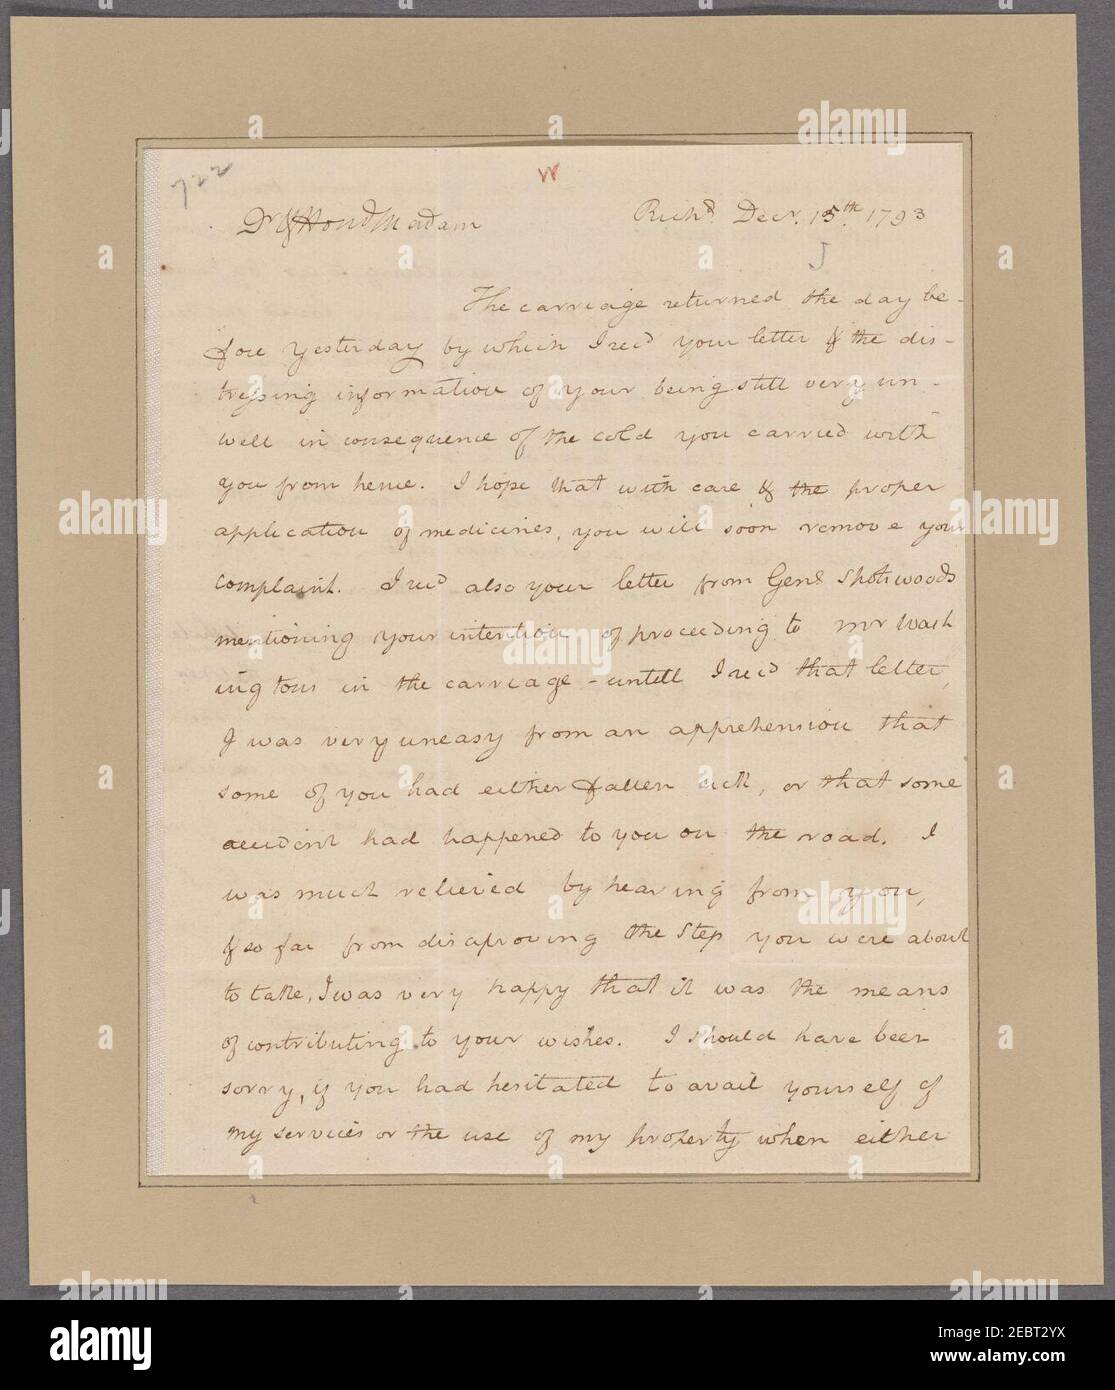 722
W
Dr & Hond Madam Richd. Decr. 15th. 1793
The carriage returned the day be-
fore yesterday by which I recd your letter & the dis-
tressing information of your being still very un-
well in consequence of the cold you carried with
you from hence. I hope that with care & the proper
application of medicines, you will soon remove your
complaint. I recd also your letter from Genl Spotswoods
mentioning your intention of proceeding to mr Wash
ingtons in the carriage - untill I recd that letter,
I was very uneasy from an apprehension that
some of you had either fallen sick, or that some
accident had happened to you on the road. I
was much relieved by hearing from you,
& so far from disaproving the step you were about
to take, I was very happy that it was the means
of contributing to your wishes. I should have been
sorry, if you had hesitated to avail yourself of
my services or the use of my property when either
alamy
a
Image ID: 2EBT2YX
www.alamy.com